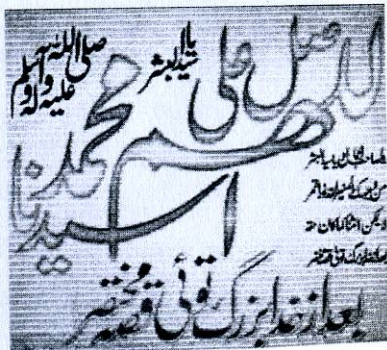 اللهم صل علی
سیدنا محمد
صلی اللہ علیہ وآلہ وسلم
یا سید البشر
یا صاحب الجمال و یا سید البشر
من وجہک المنیر لقد نور القمر
لا یمکن الثناء کما کان حقہ
بعد از خدا بزرگ توئی قصہ مختصر
بعد از خدا بزرگ توئی قصہ مختصر